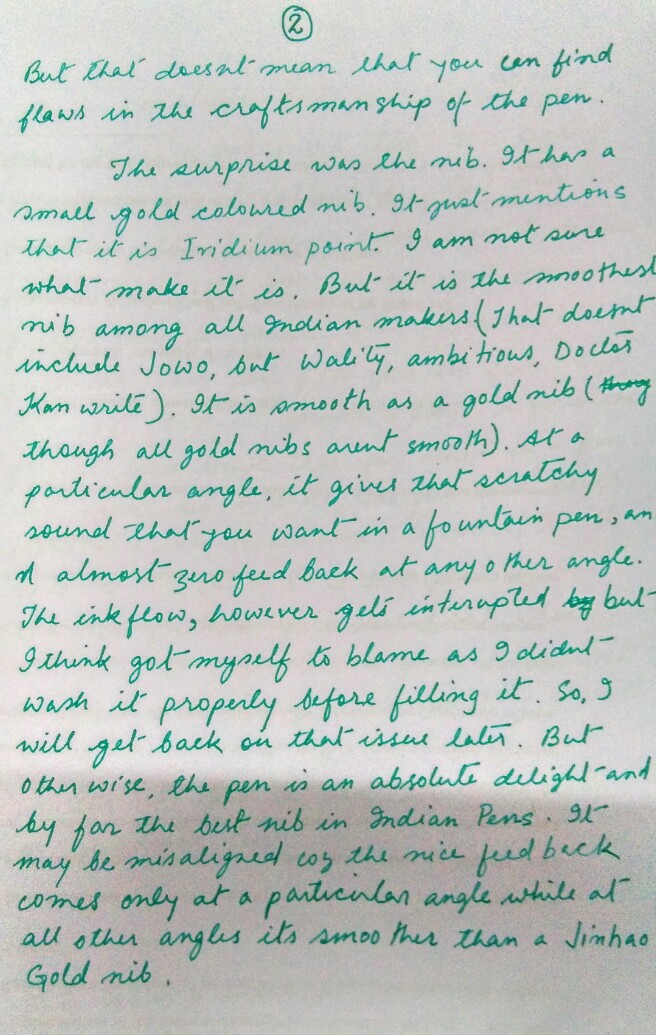 2
But that doesnt mean that you can find
flaws in the craftsmanship of the pen.
The surprise was the nib. It has a
small gold coloured nib. It just mentions
that it is Iridium point. I am not sure
what make it is. But it is the smoothest
nib among all Indian makers (That doesnt
include Jowo, but Wality, ambitious, Doctor
Kanwrite). It is smooth as a gold nib (
though all gold nibs arent smooth). At a
particular angle, it gives that scratchy
sound that you want in a fountain pen, an
d almost zero feed back at any other angle.
The ink flow, however gets interupted but
I think got myself to blame as I didnt
wash it properly before filling it. So, I
will get back on that issue later. But
otherwise, the pen is an absolute delight and
by far the best nib in Indian Pens. It
may be misaligned coz the nice feed back
comes only at a particular angle while at
all other angles its smoother than a Jinhao
Gold nib.